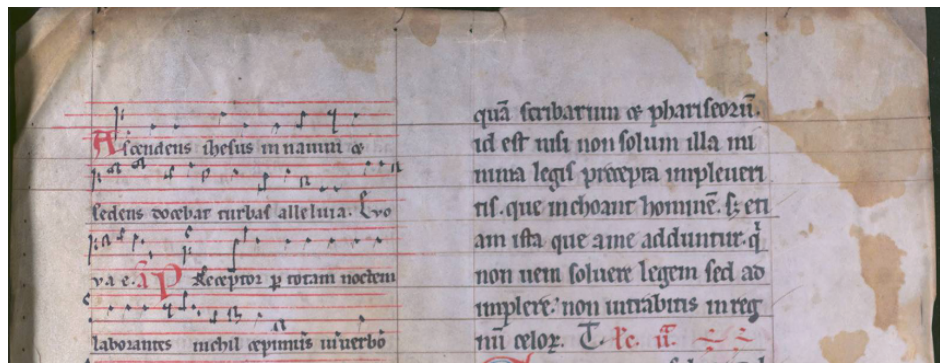 Ascendens ihesus in nauim &
sedens docebat turbas alleluia. Evo
vae. a Preceptor p totam noctem
laborantes nichil cepimus in verbo
quā scribarum & phariseorū.
id est nisi non solum illa mi
nima legis precepta impleueri
tis. que inchoant hominē. sꝫ eti
am ista que a me adduntur. q̄
non ueni soluere legem sed ad
implere: non intrabitis in reg
nū celoꝝ. T.